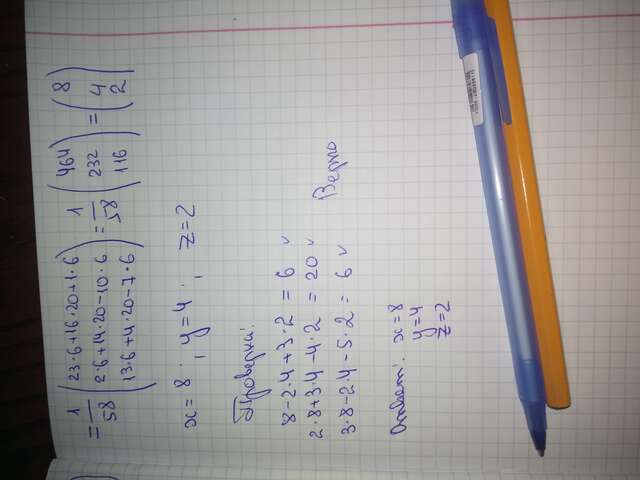 = 1/58 (23·6+16·20+1·6
2·6+14·20-10·6
13·6+4·20-7·6) = 1/58 (464
232
116) = (8
4
2)
x=8 ; y=4 ; z=2
Проверка:
8-2·4+3·2 = 6 ✓
2·8+3·4-4·2 = 20 ✓
3·8-2·4-5·2 = 6 ✓
Верно
Ответ: x=8
y=4
z=2